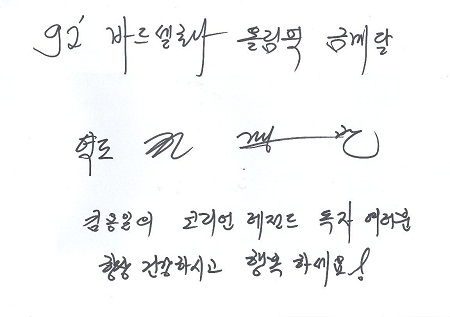 92' 바르셀로나 올림픽 금메달
역도
김용일의 코리언 레전드 독자 여러분
항상 건승하시고 행복 하세요!